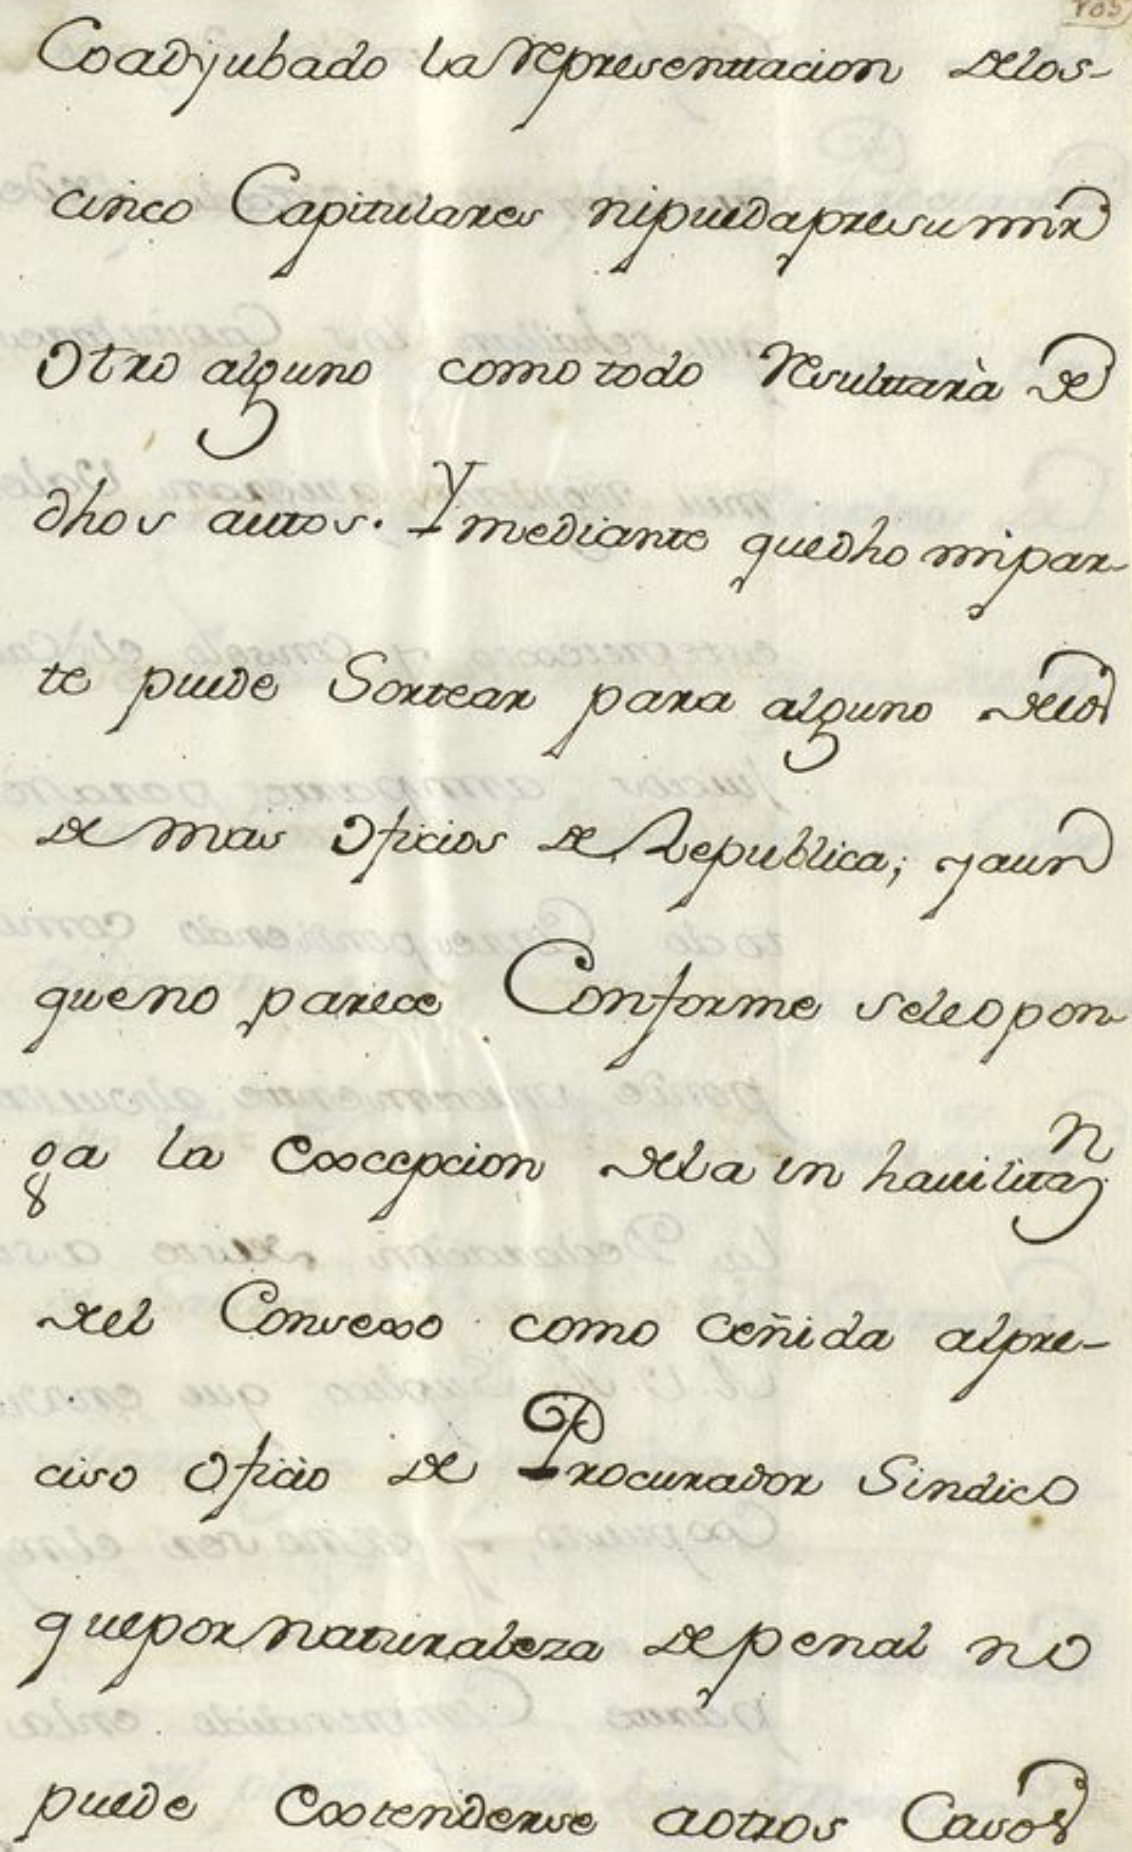 Coadjubado la representacion delos-
cinco Capitulares nipuedapresumir
otro alguno como todo Resultarà de
dhos autos. Y mediante quedho mipar-
te puede Sortear para alguno delos
de mas oficios de Republica; yaun
queno parece Conforme seleopon-
ga la Excepcion dela in havilitazn
del Consexo como ceñida alpre-
ciso oficio de Procurador Sindico
quepor naturaleza depenal no
puede Extenderse aotros Casos